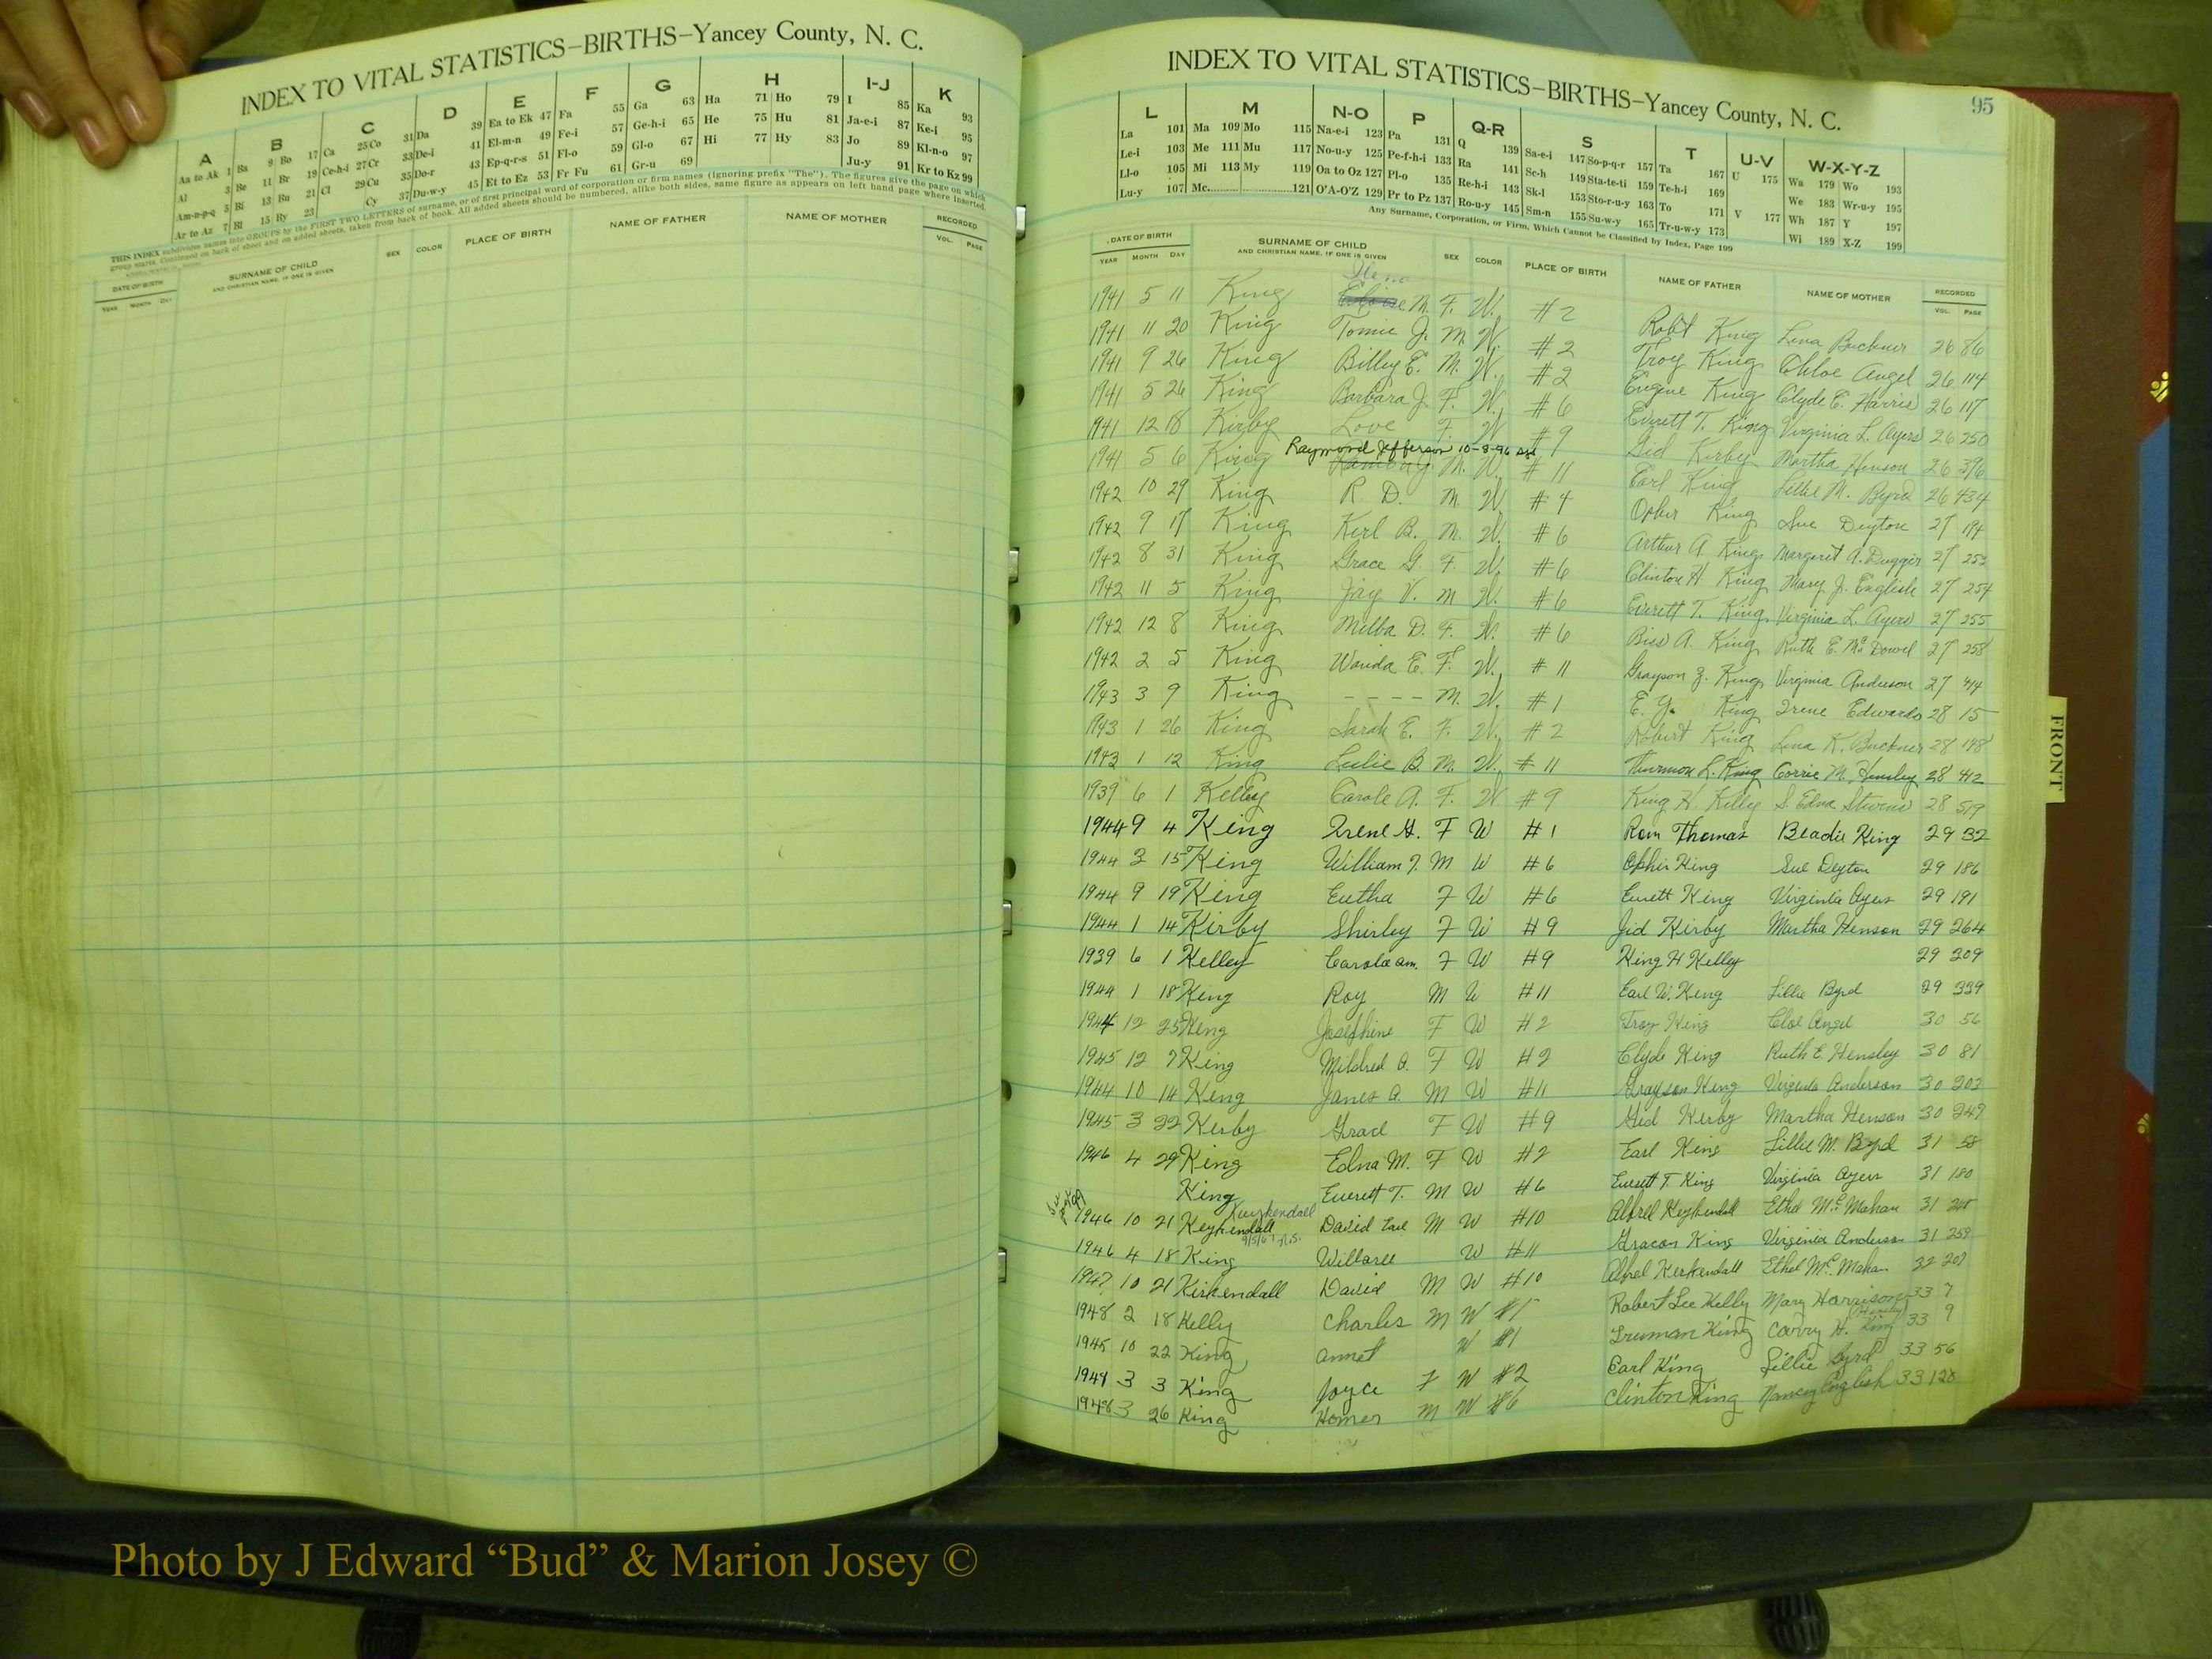 INDEX TO VITAL STATISTICS—BIRTHS—Yancey County, N. C.
A B C D E F G H I-J K
Aa to Ak 1 Ba 9 Bo 17 Ca 25 Co 31 Da 39 Ea to Ek 47 Fa 55 Ga 63 Ha 71 Ho 79 I 85 Ka 93
Al 3 Be 11 Br 19 Ce-h-i 27 Cr 33 De-i 41 El-m-n 49 Fe-i 57 Ge-h-i 65 He 75 Hu 81 Ja-e-i 87 Ke-i 95
Am-n-p-q 5 Bi 13 Bu 21 Cl 29 Cu 35 Do-r 43 Ep-q-r-s 51 Fl-o 59 Gl-o 67 Hi 77 Hy 83 Jo 89 Kl-n-o 97
Ar to Az 7 Bl 15 By 23 Cy 37 Du-w-y 45 Et to Ez 53 Fr Fu 61 Gr-u 69 Ju-y 91 Kr to Kz 99
THIS INDEX subdivides names into GROUPS by the FIRST TWO LETTERS of surname, or of first principal word of corporation or firm names (ignoring prefix "The"). The figures give the page on which
group starts. Continued on back of sheet and on added sheets, taken from back of book. All added sheets should be numbered, alike both sides, same figure as appears on left hand page where inserted.
DATE OF BIRTH SURNAME OF CHILD SEX COLOR PLACE OF BIRTH NAME OF FATHER NAME OF MOTHER RECORDED
YEAR MONTH DAY AND CHRISTIAN NAME, IF ONE IS GIVEN VOL. PAGE
95
INDEX TO VITAL STATISTICS—BIRTHS—Yancey County, N. C.
L M N-O P Q-R S T U-V W-X-Y-Z
La 101 Ma 109 Mo 115 Na-e-i 123 Pa 131 Q 139 Sa-e-i 147 So-p-q-r 157 Ta 167 U 175 Wa 179 Wo 193
Le-i 103 Me 111 Mu 117 No-u-y 125 Pe-f-h-i 133 Ra 141 Sc-h 149 Sta-te-ti 159 Te-h-i 169 We 183 Wr-u-y 195
Ll-o 105 Mi 113 My 119 Oa to Oz 127 Pl-o 135 Re-h-i 143 Sk-l 153 Sto-r-u-y 163 To 171 V 177 Wh 187 Y 197
Lu-y 107 Mc 121 O'A-O'Z 129 Pr to Pz 137 Ro-u-y 145 Sm-n 155 Su-w-y 165 Tr-u-w-y 173 Wi 189 X-Z 199
Any Surname, Corporation, or Firm, Which Cannot be Classified by Index, Page 199
DATE OF BIRTH SURNAME OF CHILD SEX COLOR PLACE OF BIRTH NAME OF FATHER NAME OF MOTHER RECORDED
YEAR MONTH DAY AND CHRISTIAN NAME, IF ONE IS GIVEN VOL. PAGE
1941 5 11 King M. F. W. #2 Robt King Lena Buckner 26 86
1941 11 20 King Tomie J. M. W. #2 Troy King Chloe Angel 26 114
1941 9 26 King Billy E. M. W. #2 Eugene King Clyde E. Harris 26 117
1941 5 26 King Barbara J. F. W. #6 Everett T. King Virginia L. Ayers 26 250
1941 12 18 Kirby Love F. W #9 Gid Kirby Martha Henson 26 396
1941 5 6 King Raymond Jefferson 10-8-96 M. W. #11 Earl King Lillie M. Byrd 26 434
1942 10 29 King R. D. M. W. #4 Opher King Sue Deyton 27 194
1942 9 17 King Kerl B. M. W. #6 Arthur A. King Margaret A. Duggar 27 252
1942 8 31 King Grace G. F. W. #6 Clinton H. King Mary J. English 27 254
1942 11 5 King Jay V. M W. #6 Everett T. King Virginia L. Ayers 27 255
1942 12 8 King Melba D. F. W. #6 A. King Ruth E. McDowel 27 258
1942 2 5 King Wanda E. F. W. #11 Grayson Z. King Virginia Anderson 27 414
1943 3 9 King - - - - M. W. #1 E. Y. King Irene Edwards 28 15
1943 1 26 King Sarah E. F. W. #2 Robert King Lena K. Buckner 28 148
1943 1 12 King Leslie B. M. W. #11 Thurmon L. King Corrie M. Hensley 28 412
1939 6 1 Kelley Carole A. F. W #9 King H. Kelly S. Edna Stevens 28 519
1944 9 4 King Irene H. F W #1 Rom Thomas Beadie King 29 32
1944 3 15 King William J. M W #6 Ophir King Sue Deyton 29 186
1944 9 19 King Eutha F W #6 Everett King Virginia Ayers 29 191
1944 1 14 Kirby Shirley F W #9 Jid Kirby Martha Henson 29 264
1939 6 1 Kelley Carole am. F W #9 King H Kelley 29 209
1944 1 18 King Roy M W #11 Earl W. King Lillie Byrd 29 339
1944 12 25 King Josephine F W #2 Troy King Cloe Angel 30 56
1945 12 7 King Mildred O. F W #2 Clyde King Ruth E. Hensley 30 81
1944 10 14 King James A. M W #11 Grayson King Virginia Anderson 30 203
1945 3 22 Kerby Grace F W #9 Gid Kerby Martha Henson 30 249
1946 4 29 King Edna M. F W #2 Earl King Lillie M. Byrd 31 58
King Everett T. M W #6 Everett T. King Virginia Ayers 31 180
Kuykendall
1946 10 21 Keykendall David Earl M W #10 Alfred Keykendall Ethel McMahan 31 248
1946 4 18 King Willaree W #11 Gracon King Virginia Anderson 31 259
1947 10 21 Kirkendall David M W #10 Alfred Kerkendall Ethel McMahan 32 207
1948 2 18 Kelly Charles M W #1 Robert Lee Kelly Mary Harrison 33 7
1945 10 22 King Annet W #1 Truman King Carry H. King (Hensley) 33 9
1949 3 3 King Joyce F W #2 Earl King Lillie Byrd 33 56
1948 3 26 King Homer M W #6 Clinton King Nancy English 33 128
FRONT
Photo by J Edward “Bud” & Marion Josey ©